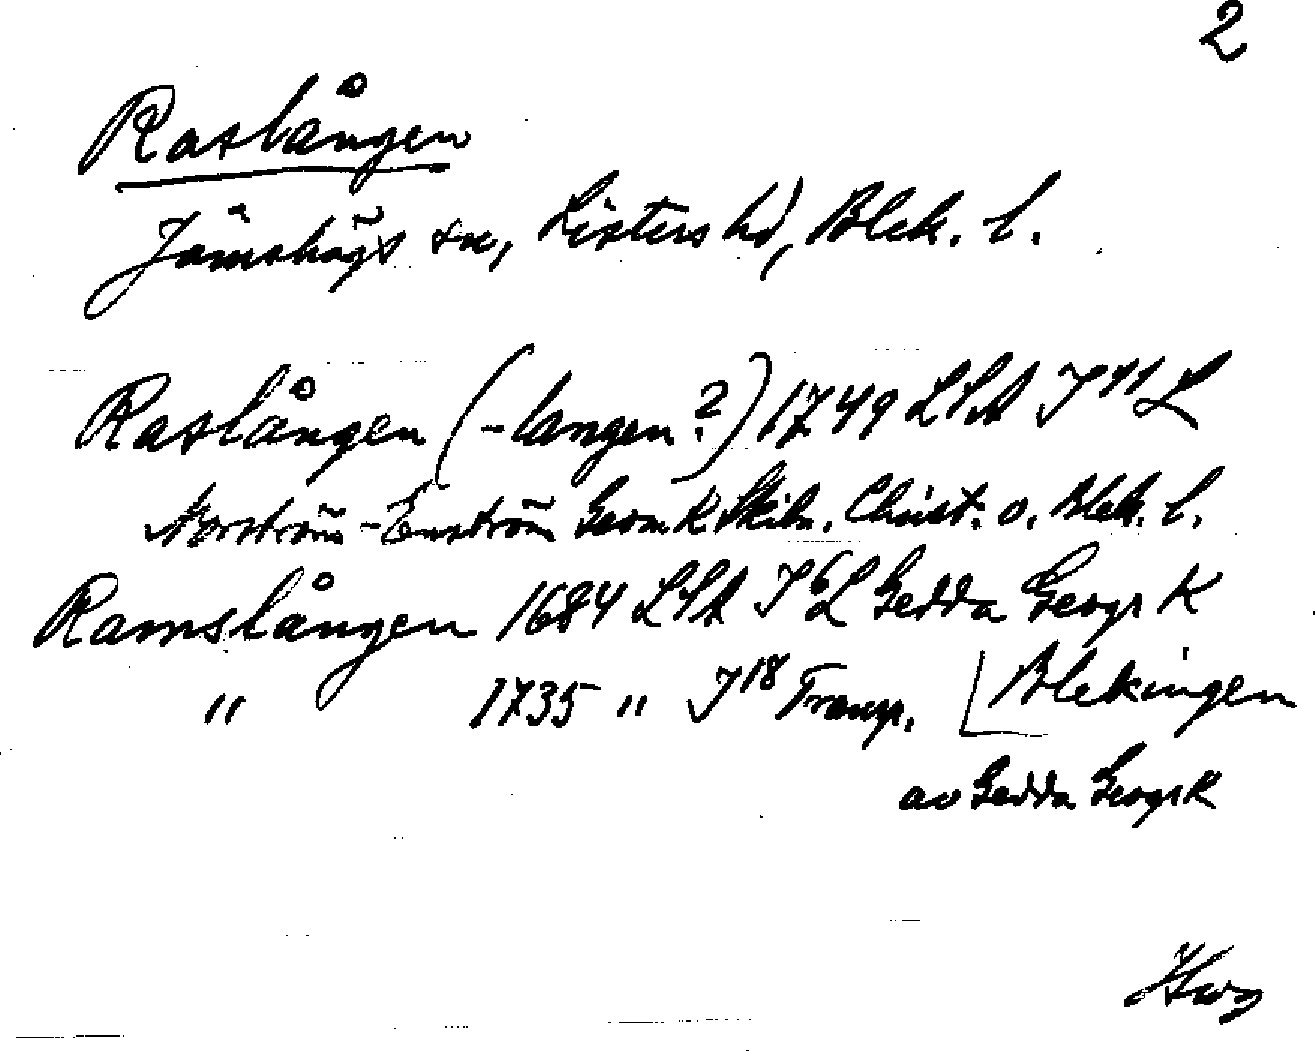 2
Raslången
Jämshögs sn, Listers hd, Blek. l.
Raslången (-langen?) 1749 LSA I 11 L
Norström-Enström Geom K Skiln. Christ. o. Blek. l.
Ramslången 1684 LSA I 6 L Gedda Geogr K
" 1735 " I 18 Transp. Blekingen
av Gedda Geogr K